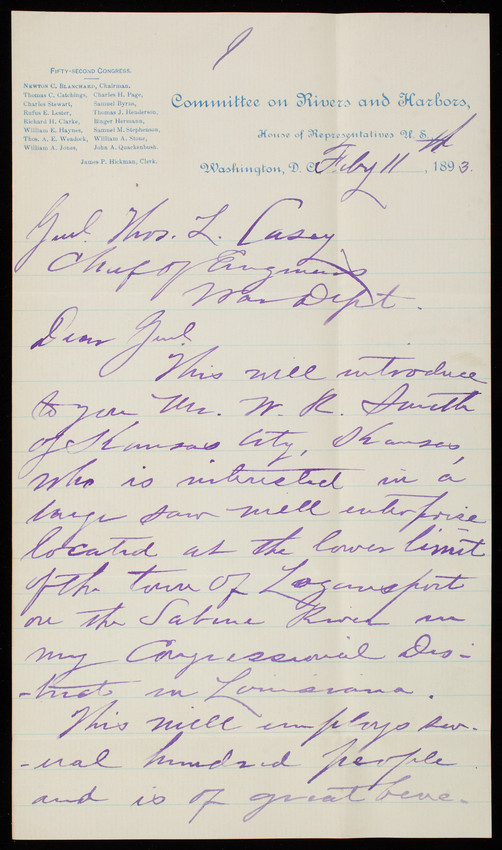 1
FIFTY-SECOND CONGRESS.
NEWTON C. BLANCHARD, Chairman.
Thomas C. Catchings, Charles H. Page,
Charles Stewart, Samuel Byrns,
Rufus E. Lester, Thomas J. Henderson,
Richard H. Clarke, Binger Hermann,
William E. Haynes, Samuel M. Stephenson,
Thos. A. E. Weadock, William A. Stone,
William A. Jones, John A. Quackenbush.
James P. Hickman, Clerk.
Committee on Rivers and Harbors,
House of Representatives U. S.
Washington, D. C. Feby 11th, 1893.
Genl. Thos. L. Casey
Chief of Engineers
War Dept.
Dear Genl.
This will introduce
to you Mr. W. R. Smith
of Kansas City, Kansas,
who is interested in a
large saw mill enterprise
located at the lower limit
of the town of Logansport
on the Sabine River in
my Congressional Dis-
-trict in Louisiana.
This mill employs sev-
-eral hundred people
and is of great bene-